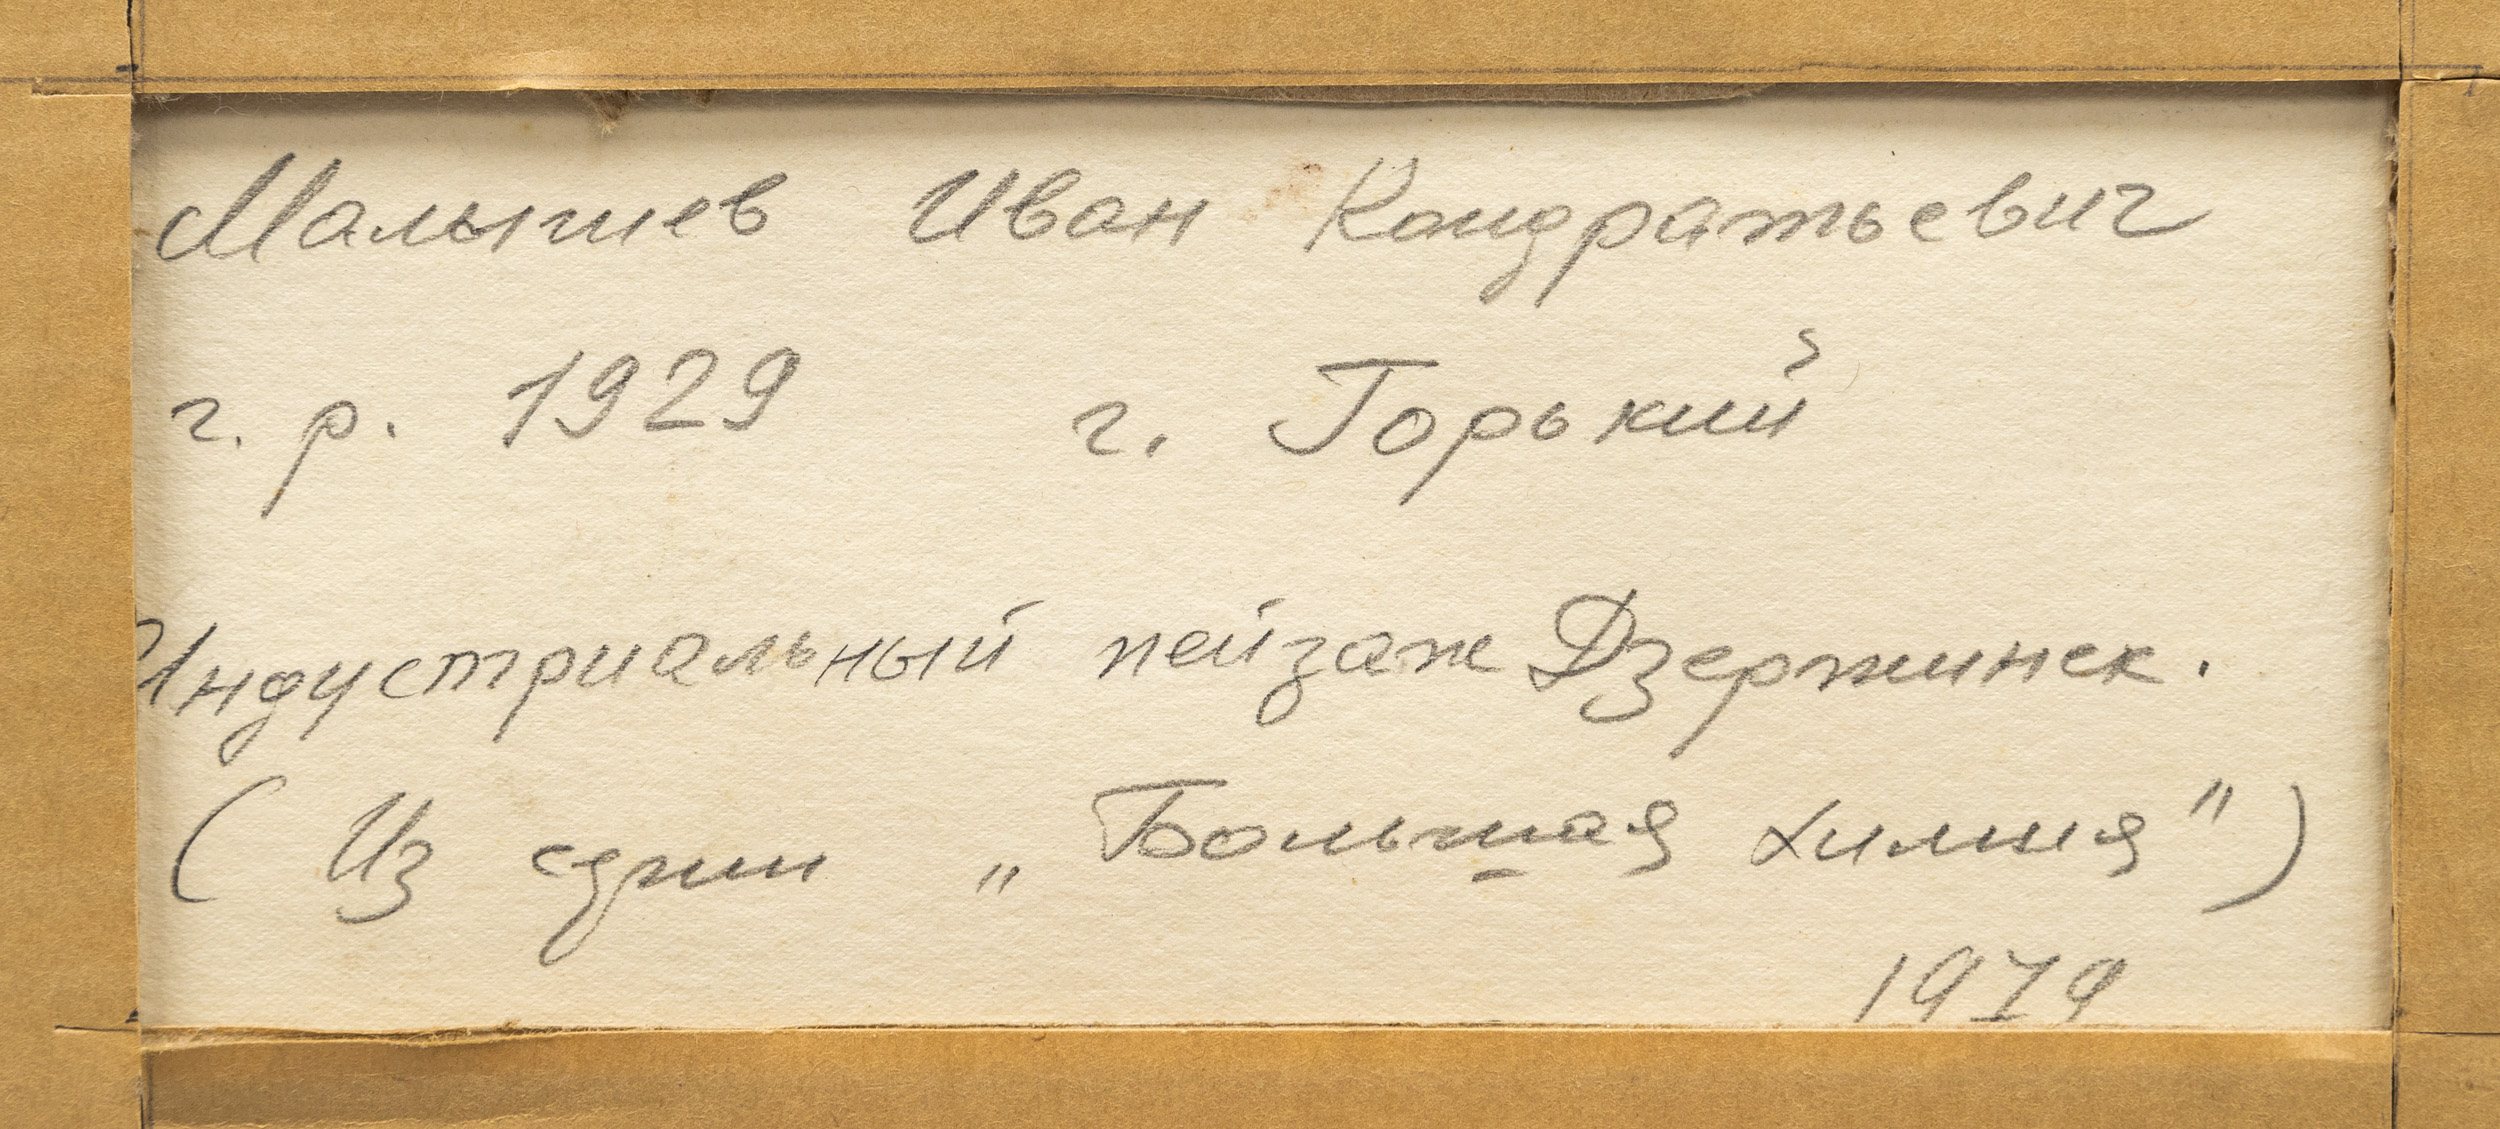 Малышев Иван Кондратьевич
г. р. 1929 г. Горький
Индустриальный пейзаж Дзержинск.
( Из серии „ Большая химия" )
1979